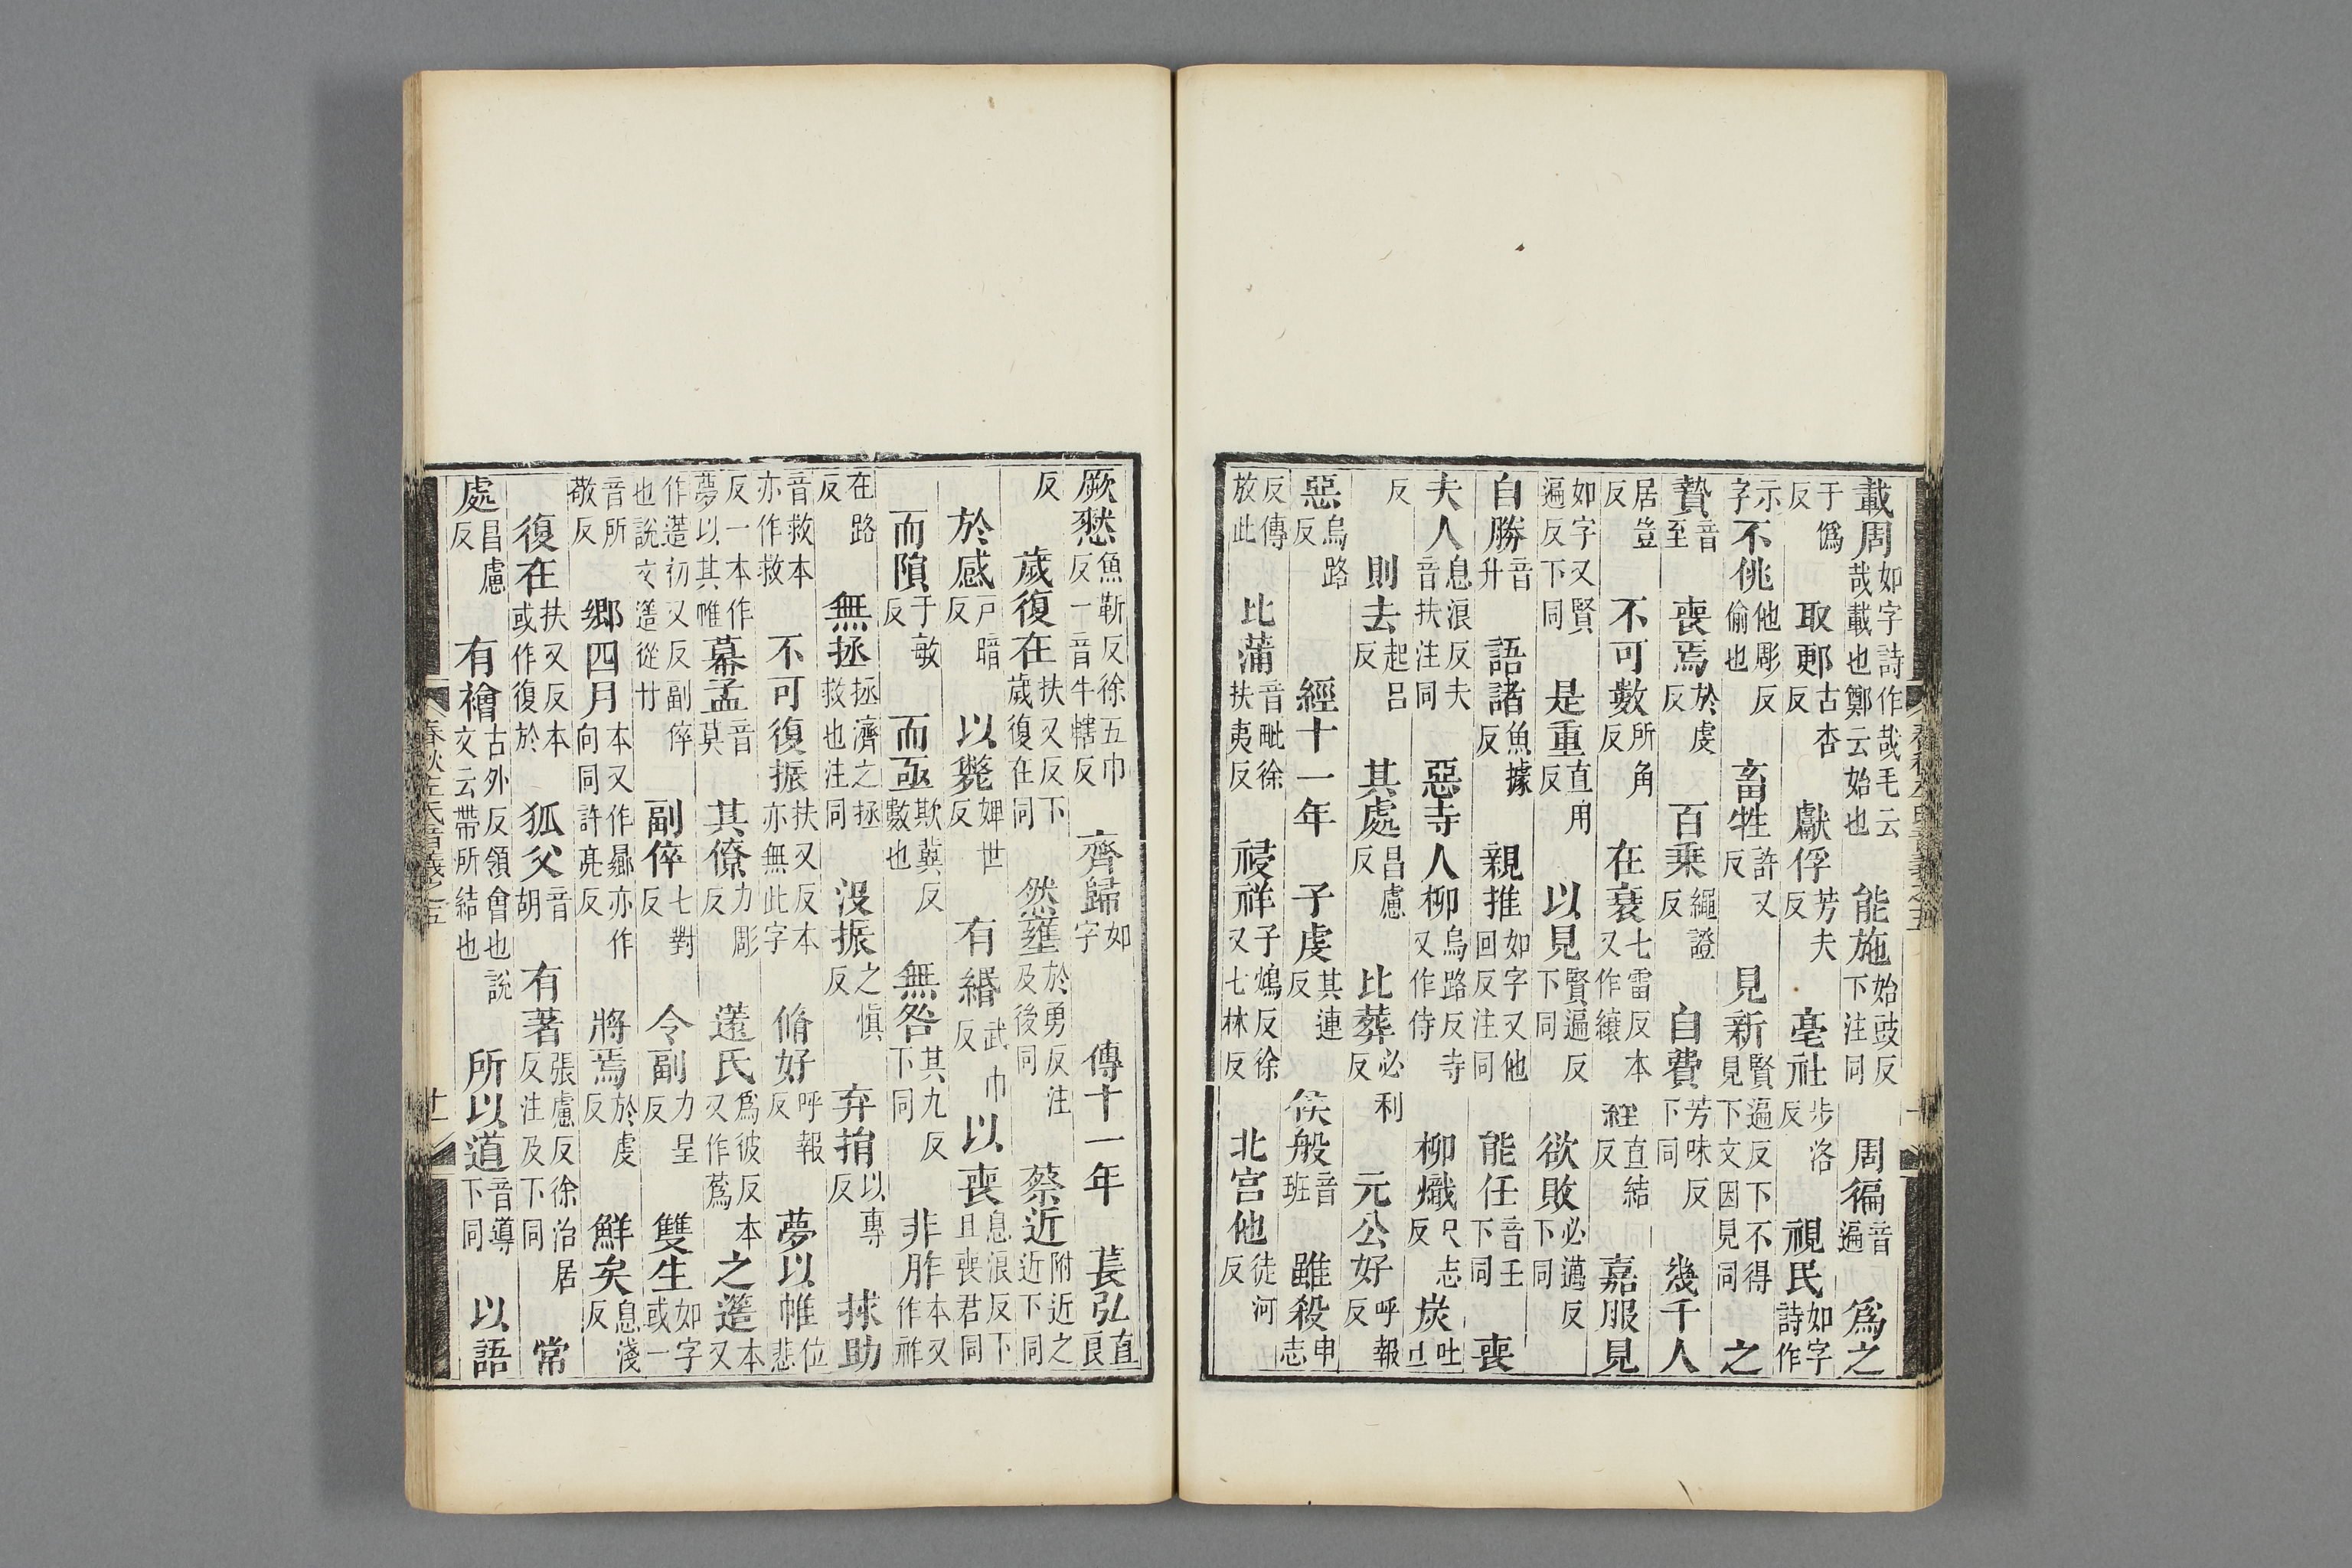 載周如字詩作哉毛云哉載也鄭云始也能施始豉反下注同周徧音遍爲之
于僞反取郠古杏反獻俘芳夫反亳社步洛反視民如字詩作
示字不佻他彫反偷也畜牲許又反見新賢遍反下不得見下文因見同之
贄音至喪焉於虔反百乘繩證反自費芳味反下同幾千人
居豈反不可數所角反在衰七雷反本又作縗絰直結反嘉服見
如字又賢遍反下同是重直用反以見賢遍反下同欲敗必邁反下同
自勝音升語諸魚據反親推如字又他回反注同能任音壬下同喪
夫人息浪反夫音扶注同惡寺人柳烏路反寺又作侍柳熾尺志反炭吐旦
反則去起呂反其處昌慮反比葬必利反元公好呼報反
惡烏路反經十一年子虔其連反侯般音班雖殺申志
反傳放此比蒲音毗徐扶夷反祲祥子鴆反徐又七林反北宮他徒河反
厥憖魚靳反徐五巾反一音牛轄反齊歸如字傳十一年萇弘直良
反歲復在扶又反下歲復在同然壅於勇反注及後同蔡近附近之近下同
於感戶暗反以斃婢世反有緡武巾反以喪息浪反下且喪君同
而隕于敏反而亟欺冀反數也無咎其九反下同非胙本又作祚
在路反無拯拯濟之拯救也注同没振之慎反弃捐以專反捄助
音救本亦作救不可復振扶又反本亦無此字脩好呼報反夢以帷位悲
反一本作夢以其帷幕孟音莫其僚力彫反薳氏爲彼反本又作蔿之簉本又
作䔏初又反副倅也說文䔏從艸副倅七對反令副力呈反雙生如字或一
音所敬反鄉四月本又作曏亦作向同許亮反將焉於虔反鮮矣息淺反
復在扶又反本或作復於狐父音胡有著張慮反徐治居反注及下同常
處昌慮反有襘古外反領會也說文云帶所結也所以道音導下同以語
春秋左氏音義之五